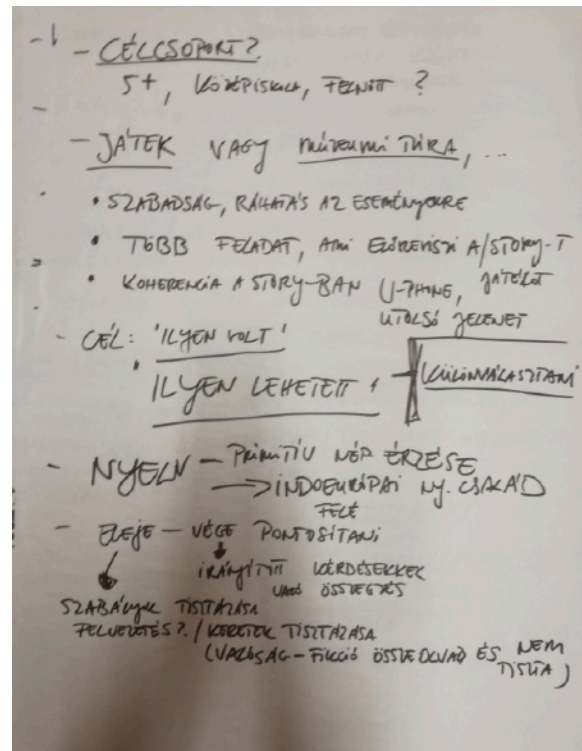 - CÉLCSOPORT?
5+, KÖZÉPISKOLA, FELNŐTT ?
- JÁTÉK VAGY MÚZEUMI TÚRA, ...
• SZABADSÁG, RÁHATÁS AZ ESEMÉNYEKRE
• TÖBB FELADAT, AMI ELŐREVISZI A/STORY-T
JÁTÉKOT
• KOHERENCIA A STORY-BAN
UTOLSÓ JELENET
- CÉL: 'ILYEN VOLT'
'ILYEN LEHETETT' KÜLÖNVÁLASZTANI
- NYELV - PRIMITÍV NÉP ÉRZÉSE
→ INDOEURÓPAI NY. CSALÁD
FELÉ
- ELEJE - VÉGE PONTOSÍTANI
IRÁNYÍTOTT KÉRDÉSEKKEL
VAGY ÖSSZEGZÉS
SZABÁLYOK TISZTÁZÁSA
FELVEZETÉS?/KERETEK TISZTÁZÁSA
(VALÓSÁG-FIKCIÓ ÖSSZEOLVAD ÉS NEM
TISZTA)